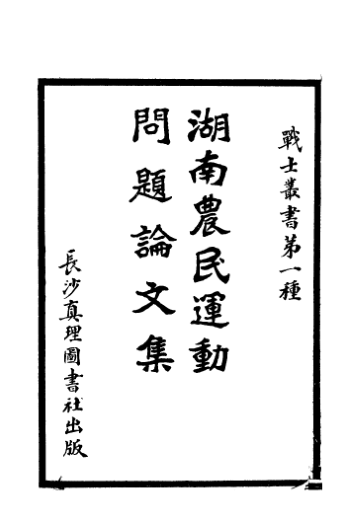 戰士叢書第一種
湖南農民運動
問題論文集
長沙真理圖書社出版